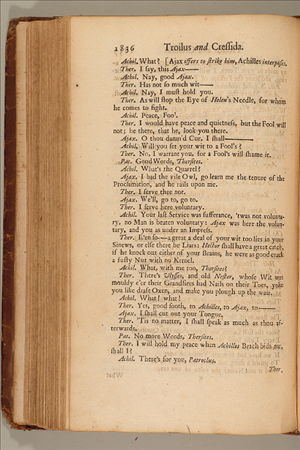 1836 Troilus and Cressida.
Achil. What? [Ajax offers to strike him, Achilles interposes.
Ther. I say, this Ajax——
Achil. Nay, good Ajax.
Ther. Has not so much wit——
Achil. Nay, I must hold you.
Ther. As will stop the Eye of Helen's Needle, for whom
he comes to fight.
Achil. Peace, Fool.
Ther. I would have peace and quietness, but the Fool will
not; he there, that he, look you there.
Ajax. O thou damn'd Cur, I shall———
Achil. Will you set your wit to a Fool's?
Ther. No, I warrant you, for a Fool's will shame it.
Pat. Good Words, Thersites.
Achil. What's the Quarrel?
Ajax. I bad the vile Owl, go learn me the tenure of the
Proclamation, and he rails upon me.
Ther. I serve thee not.
Ajax. We'll, go to, go to.
Ther. I serve here voluntary.
Achil. Your last Service was sufferance, 'twas not volun-
ry, no Man is beaten voluntary: Ajax was here the volun-
tary, and you as under an Impress.
Ther. E'en so—a great deal of your wit too lies in your
Sinews, or else there be Liars: Hector shall have a great catch,
if he knock out either of your Brains, he were as good crack
a fusty Nut with no Kernel.
Achil. What, with me too, Thersites?
Ther. There's Ulysses, and old Nestor, whose Wit was
mouldy e'er their Grandsires had Nails on their Toes, yoke
you like draft Oxen, and make you plough up the
Achil. What! what!
Ther. Yes, good sooth, to Achilles, to Ajax, to———
Ajax. I shall cut out your Tongue.
Ther. 'Tis no matter, I shall speak as much as thou af-
terwards.
Pat. No more Words, Thersites.
Ther. I will hold my peace when Achilles Brach bids me,
shall I?
Achil. There's for you, Patroclus.
Ther.